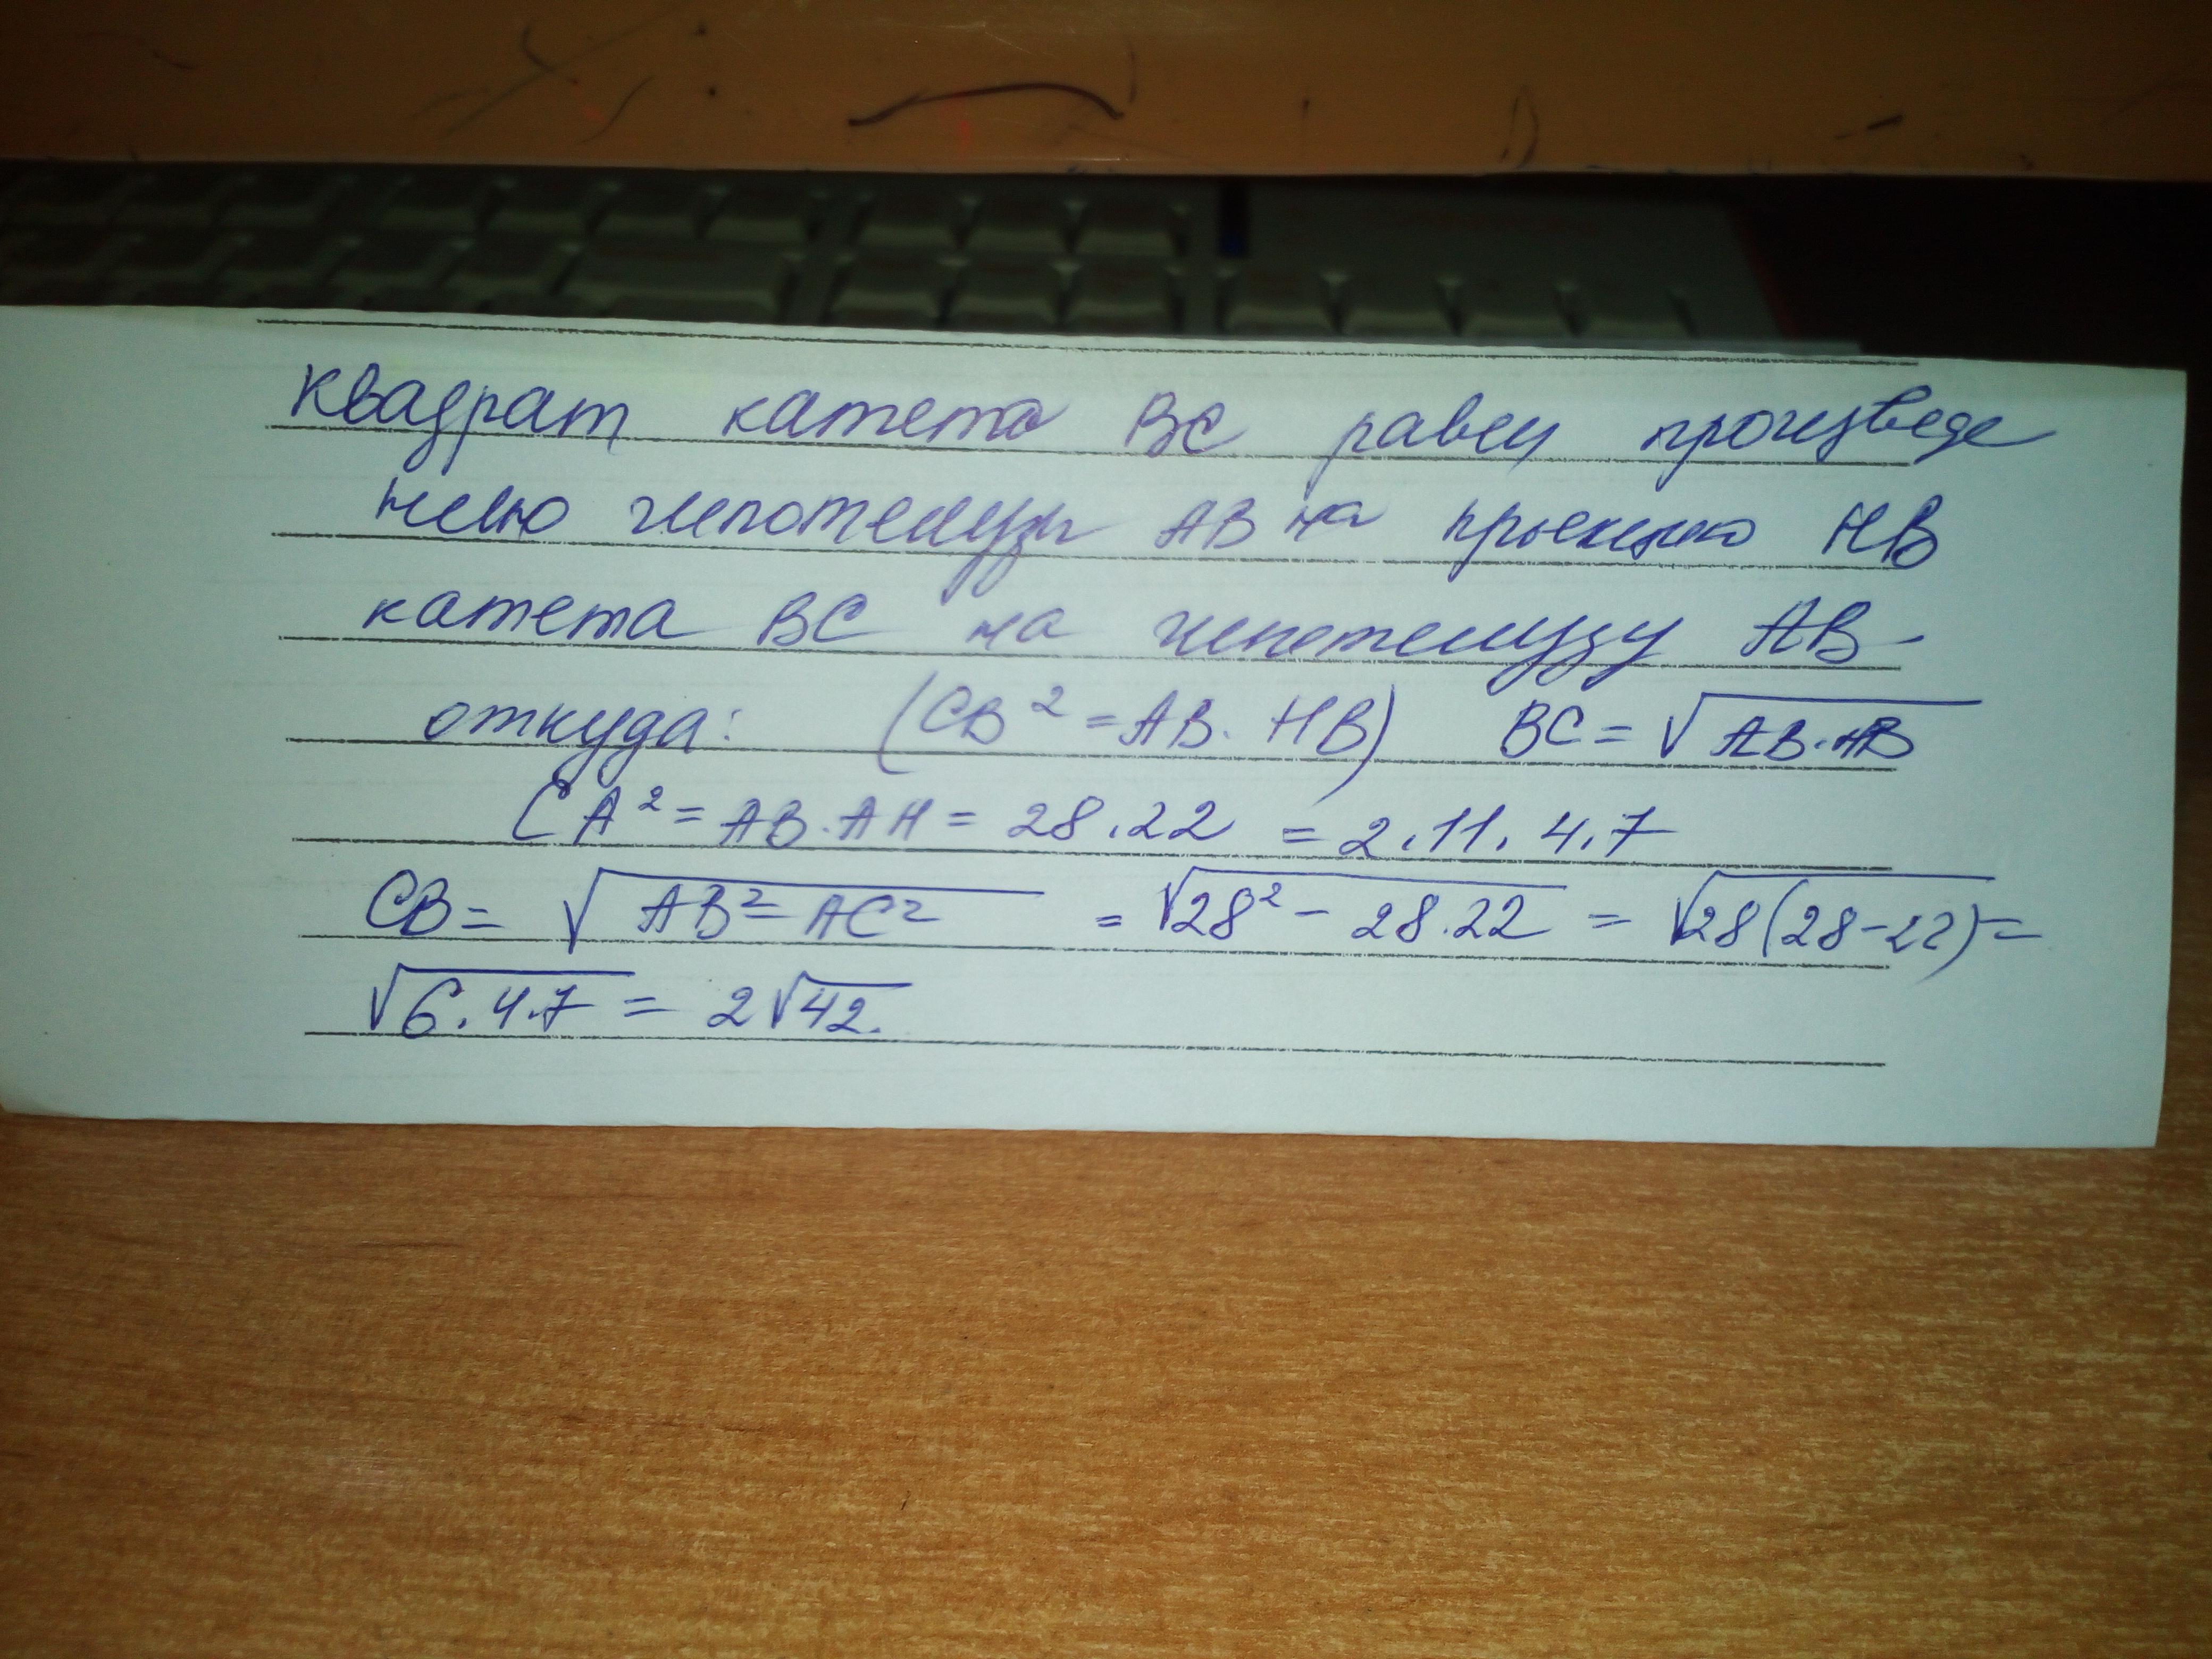 квадрат катета BC равен произведе
нию гипотенузы AB на проекцию HB
катета BC на гипотенузу AB-
откуда: (CB² = AB. HB) BC = √AB·HB
CA² = AB.AH = 28.22 = 2.11.4.7
CB = √AB²-AC² = √28² - 28.22 = √28(28-22) =
√6.4.7 = 2√42.